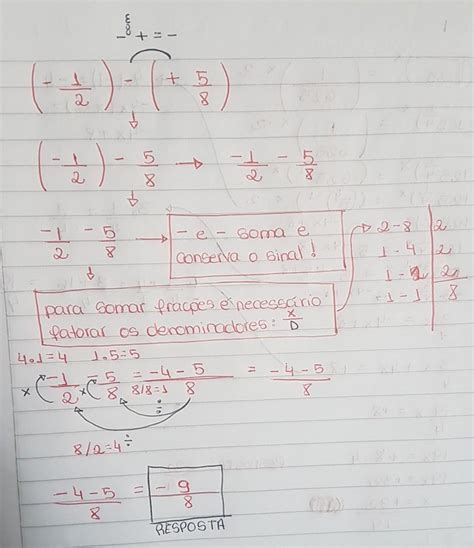 - e + = -
(-1/2) - (+ 5/8)
↓
(-1/2) - 5/8 → -1/2 - 5/8
↓
-1/2 - 5/8 → - e - soma e
conserva o sinal!
2-8 | 2
1-4 | 2
1-2 | 2
1-1 | 8
para somar frações é necessário
fatorar os denominadores: X/D
4.1=4 1.5=5
x -1/2 x -5/8 = -4-5/8 = -4-5/8
8/8=1 ÷
8/2=4 ÷
-4-5/8 = -9/8
RESPOSTA